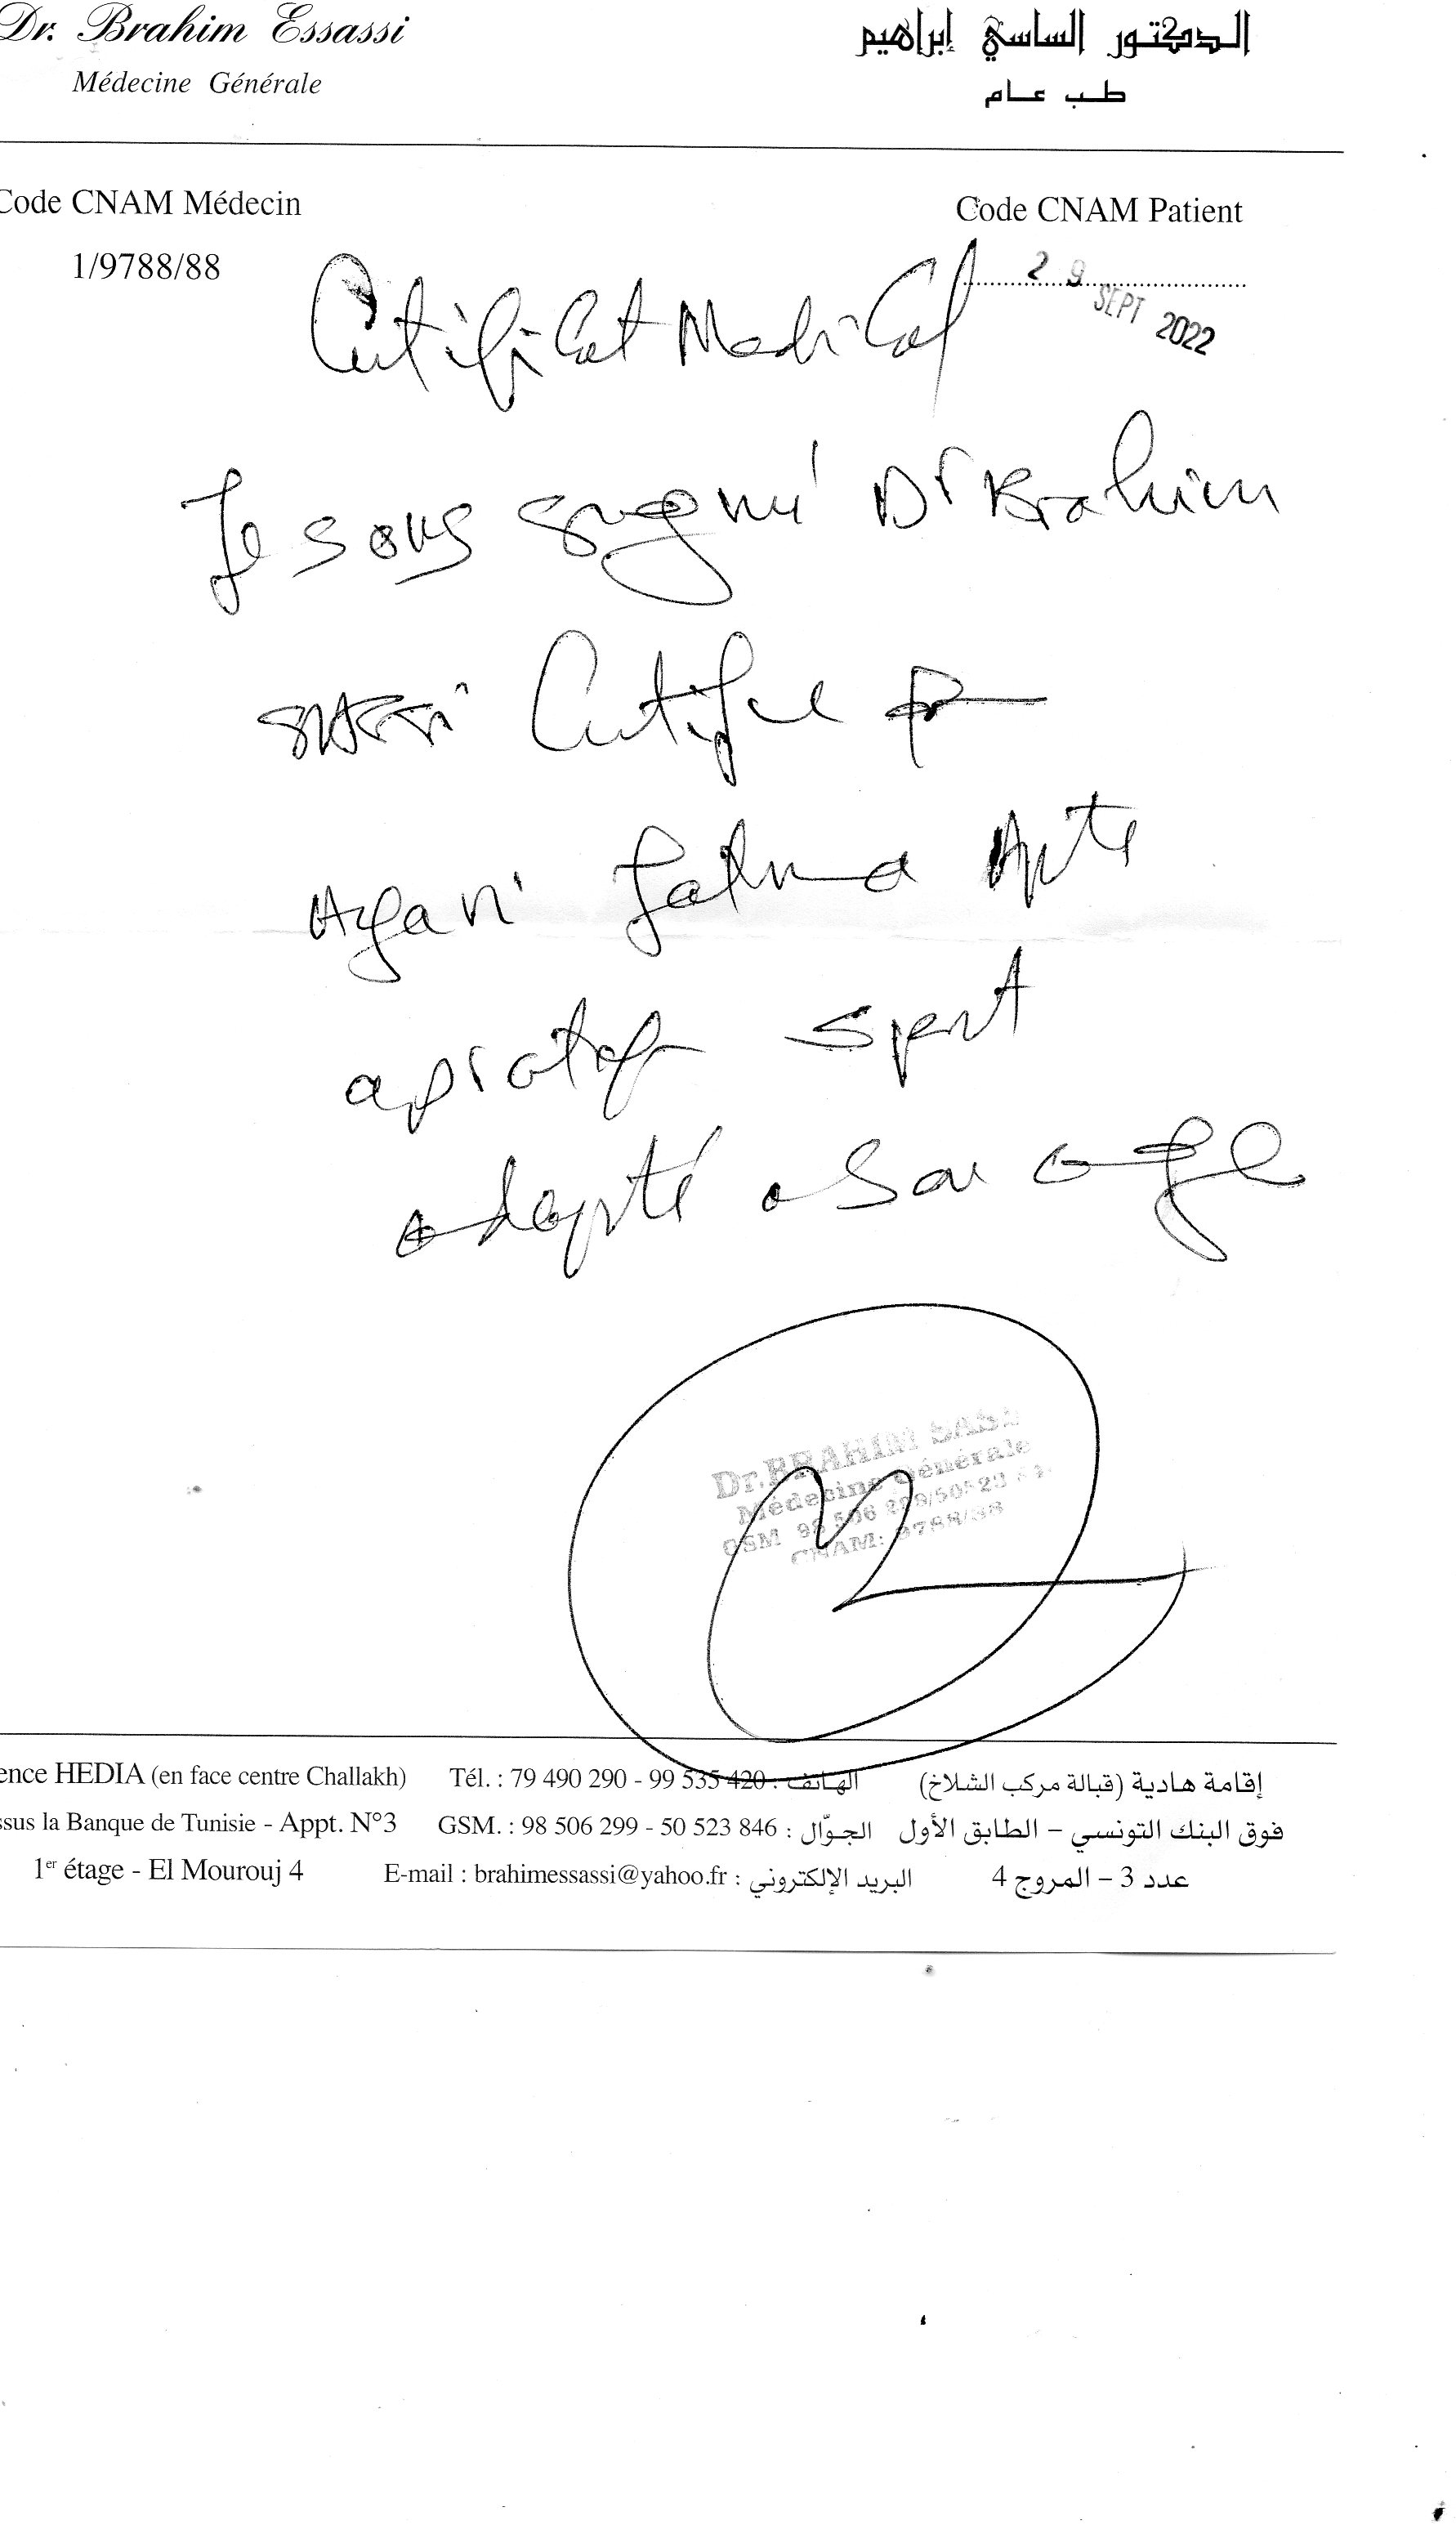 Dr. Brahim Essassi
الدكتور الساسي إبراهيم
Médecine Générale
طب عام
Code CNAM Médecin
Code CNAM Patient
1/9788/88
29 SEPT 2022
Certificat Medical
Je sous signé Dr Brahim
SASSI Certifie
Ayari Fatma Apte
a pratiq sport
adapté a son age
Dr. BRAHIM SASSI
Médecine Générale
GSM 98 506 299/50 523
CNAM: 9788/88
ence HEDIA (en face centre Challakh) Tél. : 79 490 290 - 99 535 420 : الهاتف إقامة هادية (قبالة مركب الشلاخ)
ssus la Banque de Tunisie - Appt. N°3 GSM. : 98 506 299 - 50 523 846 : الجوّال فوق البنك التونسي – الطابق الأول
1er étage - El Mourouj 4 E-mail : brahimessassi@yahoo.fr : البريد الإلكتروني عدد 3 – المروج 4